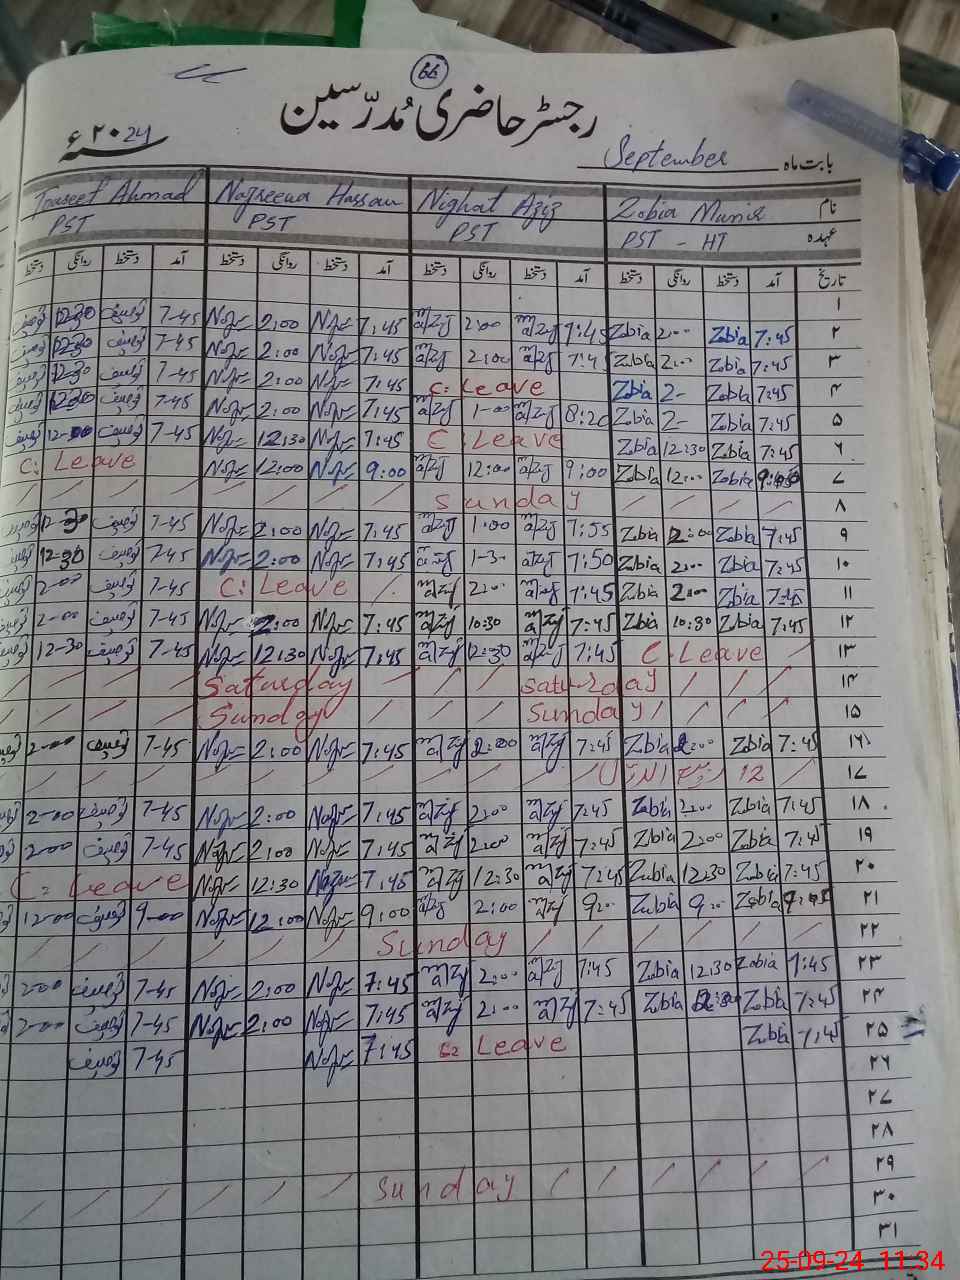 66
رجسٹر حاضری مُدرّسین
بابت ماہ September سنہ ۲۰24ء
نام Zobia Munir Nighat Aziz Nafreena Hassan Tauseef Ahmad
عہدہ PST - HT PST PST PST
تاریخ آمد دستخط روانگی دستخط آمد دستخط روانگی دستخط آمد دستخط روانگی دستخط آمد دستخط روانگی دستخط
۱
۲ 7:45 Zobia 2:00 Zobia 7:45 2:00 7:45 2:00 7-45 توصیف 12-30 توصیف
۳ 7:45 Zobia 2:00 Zobia 7:45 2:00 7:45 2:00 7-45 توصیف 12-30 توصیف
۴ 7:45 Zobia 2- Zobia C: Leave 7:45 2:00 7-45 توصیف 12-30 توصیف
۵ 7:45 Zobia 2- Zobia 8:20 1-00 7:45 2:00 7-45 توصیف 12-30 توصیف
۶ 7:45 Zobia 12:30 Zobia C: Leave 7:45 12:30 7-45 توصیف 12-00 توصیف
۷ Zobia 12:00 Zobia 9:00 12:00 9:00 12:00 C: Leave
۸ Sunday
۹ 7:45 Zobia 2:00 Zobia 7:55 1:00 7:45 2:00 7-45 توصیف توصیف
۱۰ 7:45 Zobia 2:00 Zobia 7:50 1-30 7:45 2:00 7-45 توصیف 12-30 توصیف
۱۱ 7:45 Zobia 2:00 Zobia 7:45 2:00 C: Leave 7-45 توصیف 2-00
۱۲ 7:45 Zobia 10:30 Zobia 7:45 10:30 7:45 2:00 7-45 توصیف 2-00
۱۳ C. Leave 7:45 12:30 7:45 12:30 7-45 توصیف 12-30
۱۴ Saturday Saturday
۱۵ Sunday Sunday
۱۶ 7:45 Zobia 2:00 Zobia 7:45 2:00 7:45 2:00 7-45 توصیف 2-00
۱۷ 12 ربیع الاول
۱۸ 7:45 Zobia 2:00 Zobia 7:45 2:00 7:45 2:00 7-45 توصیف 2-00
۱۹ 7:45 Zobia 2:00 Zobia 7:45 2:00 7:45 2:00 7-45 توصیف 2-00
۲۰ 7:45 Zobia 12:30 Zobia 7:45 12:30 7:45 12:30 C: Leave
۲۱ Zobia Zobia 9:00 2:00 9:00 12:00 9-00 توصیف 12-00
۲۲ Sunday
۲۳ 7:45 Zobia 12:30 Zobia 7:45 2:00 7:45 2:00 7-45 توصیف 2-00
۲۴ 7:45 Zobia Zobia 7:45 2:00 7:45 2:00 7-45 توصیف 2-00
۲۵ 7:45 Zobia Leave 7:45 7-45 توصیف
۲۶
۲۷
۲۸
۲۹ Sunday
۳۰
۳۱
25-09-24 11:34